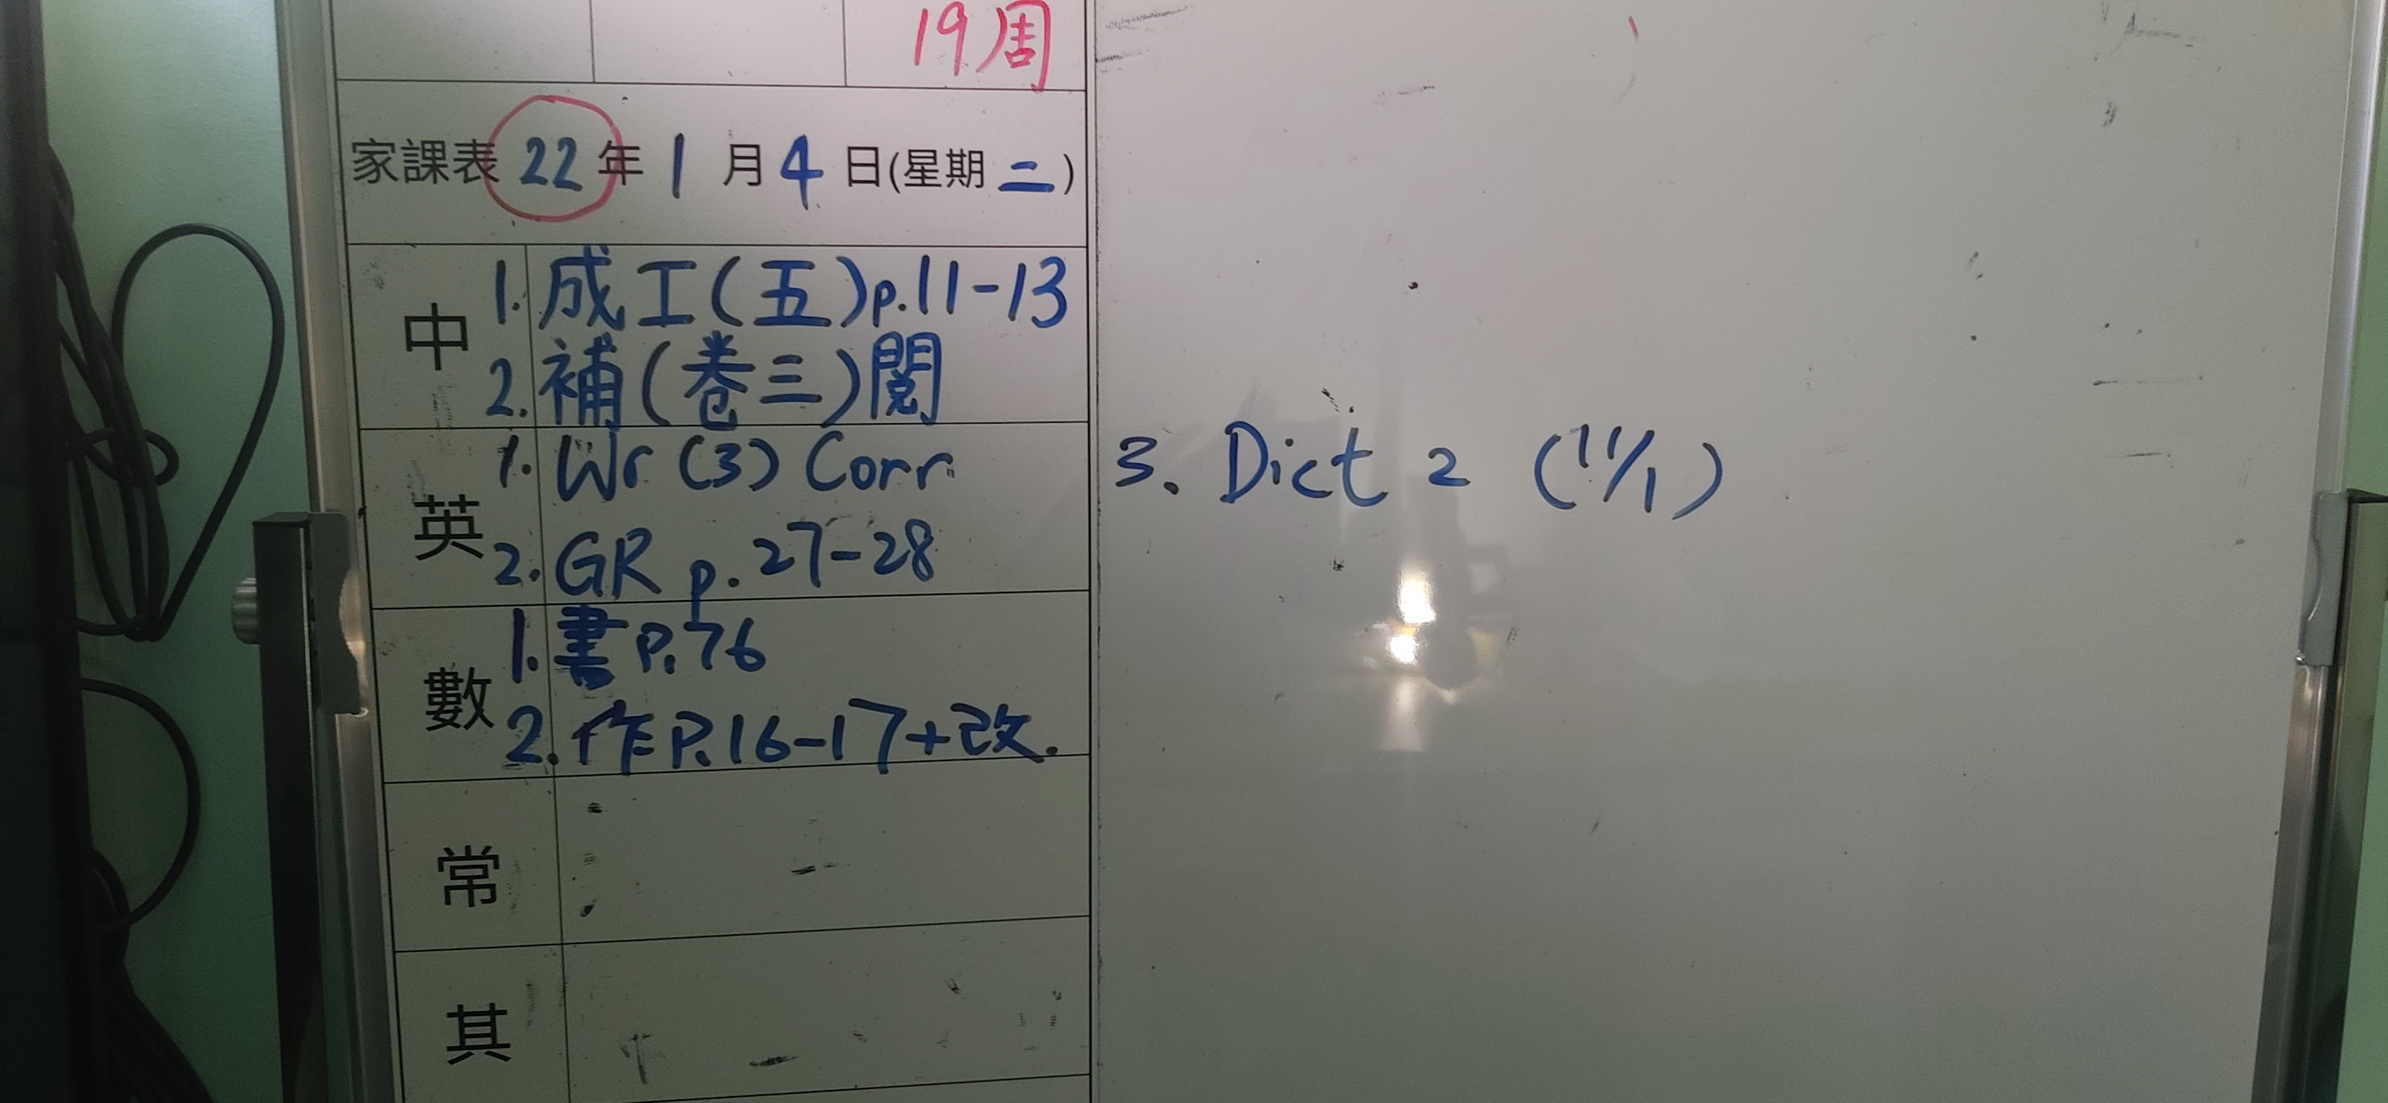 19周
家課表 22年 1月4日(星期二)
中
1. 成工(五)p.11-13
2. 補(卷三)閱
英
1. Wr (3) Corr.
2. GR p. 27-28
3. Dict 2 (11/1)
數
1. 書P.76
2. 作P.16-17+改.
常
其